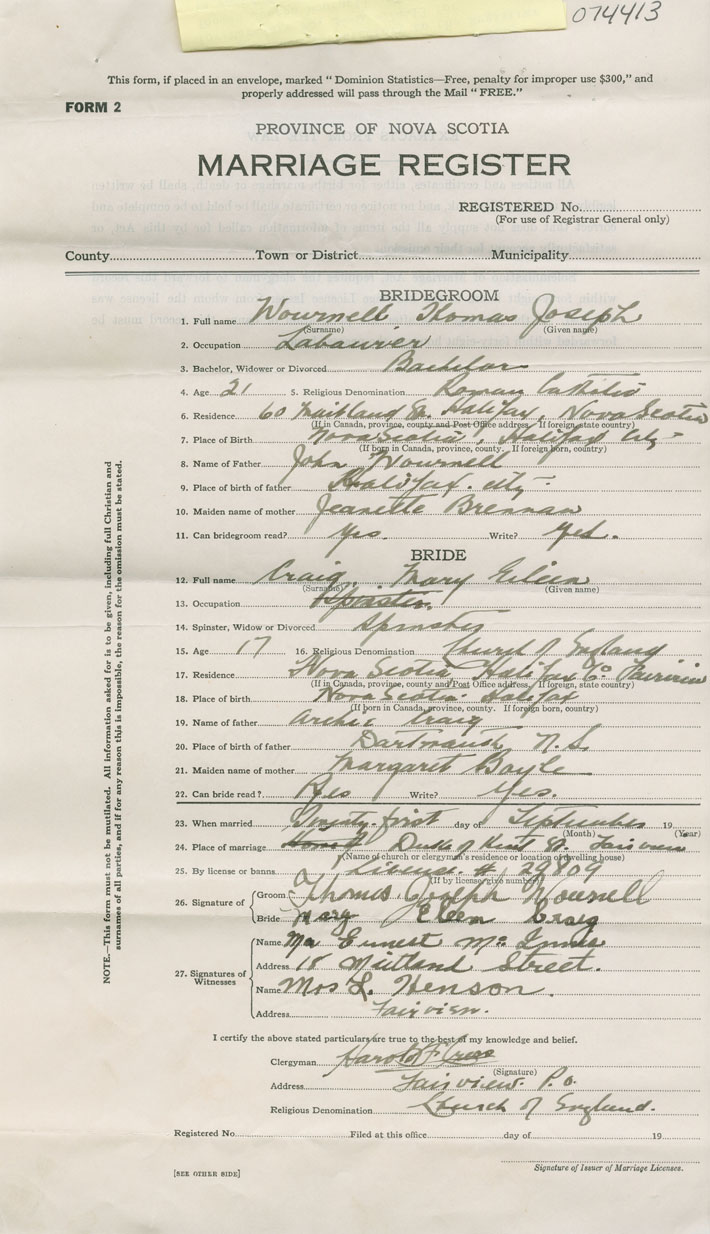 074413
This form, if placed in an envelope, marked " Dominion Statistics—Free, penalty for improper use $300," and
properly addressed will pass through the Mail " FREE."
FORM 2
PROVINCE OF NOVA SCOTIA
MARRIAGE REGISTER
REGISTERED No.
(For use of Registrar General only)
County Town or District Municipality
BRIDEGROOM
1. Full name Wournell Thomas Joseph
(Surname) (Given name)
2. Occupation Labourier
3. Bachelor, Widower or Divorced Bachelor
4. Age 21 5. Religious Denomination Roman Catholic
6. Residence 60 Maitland St. Halifax, Nova Scotia
(If in Canada, province, county and Post Office address. If foreign, state country)
7. Place of Birth Nova Scotia, Halifax City
(If born in Canada, province, county. If foreign born, country)
8. Name of Father John Wournell
9. Place of birth of father Halifax. city
10. Maiden name of mother Jeanette Brennan
11. Can bridegroom read? Yes. Write? Yes.
BRIDE
12. Full name Craig, Mary Eileen
(Surname) (Given name)
13. Occupation Spinster.
14. Spinster, Widow or Divorced Spinster
15. Age 17 16. Religious Denomination Church of England
17. Residence Nova Scotia Halifax Co. Fairview
(If in Canada, province, county and Post Office address. If foreign, state country)
18. Place of birth Nova Scotia. Halifax
(If born in Canada, province, county. If foreign born, country)
19. Name of father Archie Craig
20. Place of birth of father Dartmouth N.S.
21. Maiden name of mother Margaret Boyle
22. Can bride read? Yes Write? Yes.
23. When married Twenty-first day of September 19
(Month) (Year)
24. Place of marriage Duke of Kent St. Fairview
(Name of church or clergyman's residence or location of dwelling house)
25. By license or banns License. #
(If by license give number)
26. Signature of Groom Thomas Joseph Wournell
Bride Mary Eleen Craig
27. Signatures of Witnesses Name Mr Ernest Mc Innis
Address 18 Mitland Street.
Name Mrs L. Henson.
Address Fairview.
I certify the above stated particulars are true to the best of my knowledge and belief.
Clergyman Harold F
(Signature)
Address Fairview. P.O.
Religious Denomination Church of England.
Registered No. Filed at this office day of 19
Signature of Issuer of Marriage Licenses.
[SEE OTHER SIDE]
NOTE.—This form must not be mutilated. All information asked for is to be given, including full Christian and
surnames of all parties, and if for any reason this is impossible, the reason for the omission must be stated.